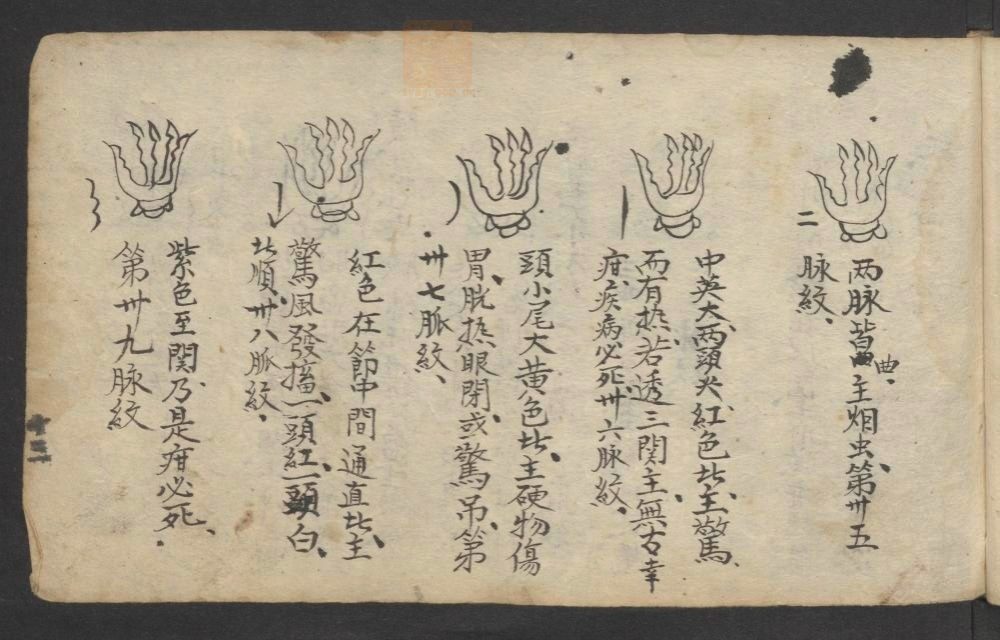 两脉皆曲、主烟虫、第卅五
脉紋、
中英大、两頭尖、紅色、此主驚
而有热、若透三関、主無古幸
疳疾病必死、卅六脉紋、
頭小尾大黄色、此主硬物傷
胃、胱热眼閉、或驚吊、第
卅七脈紋、
紅色在節中間通直、此主
驚風發搐、一頭紅、一頭白、
此順、卅八脈紋、
紫色至関、乃是疳必死、
第卅九脉紋
十三